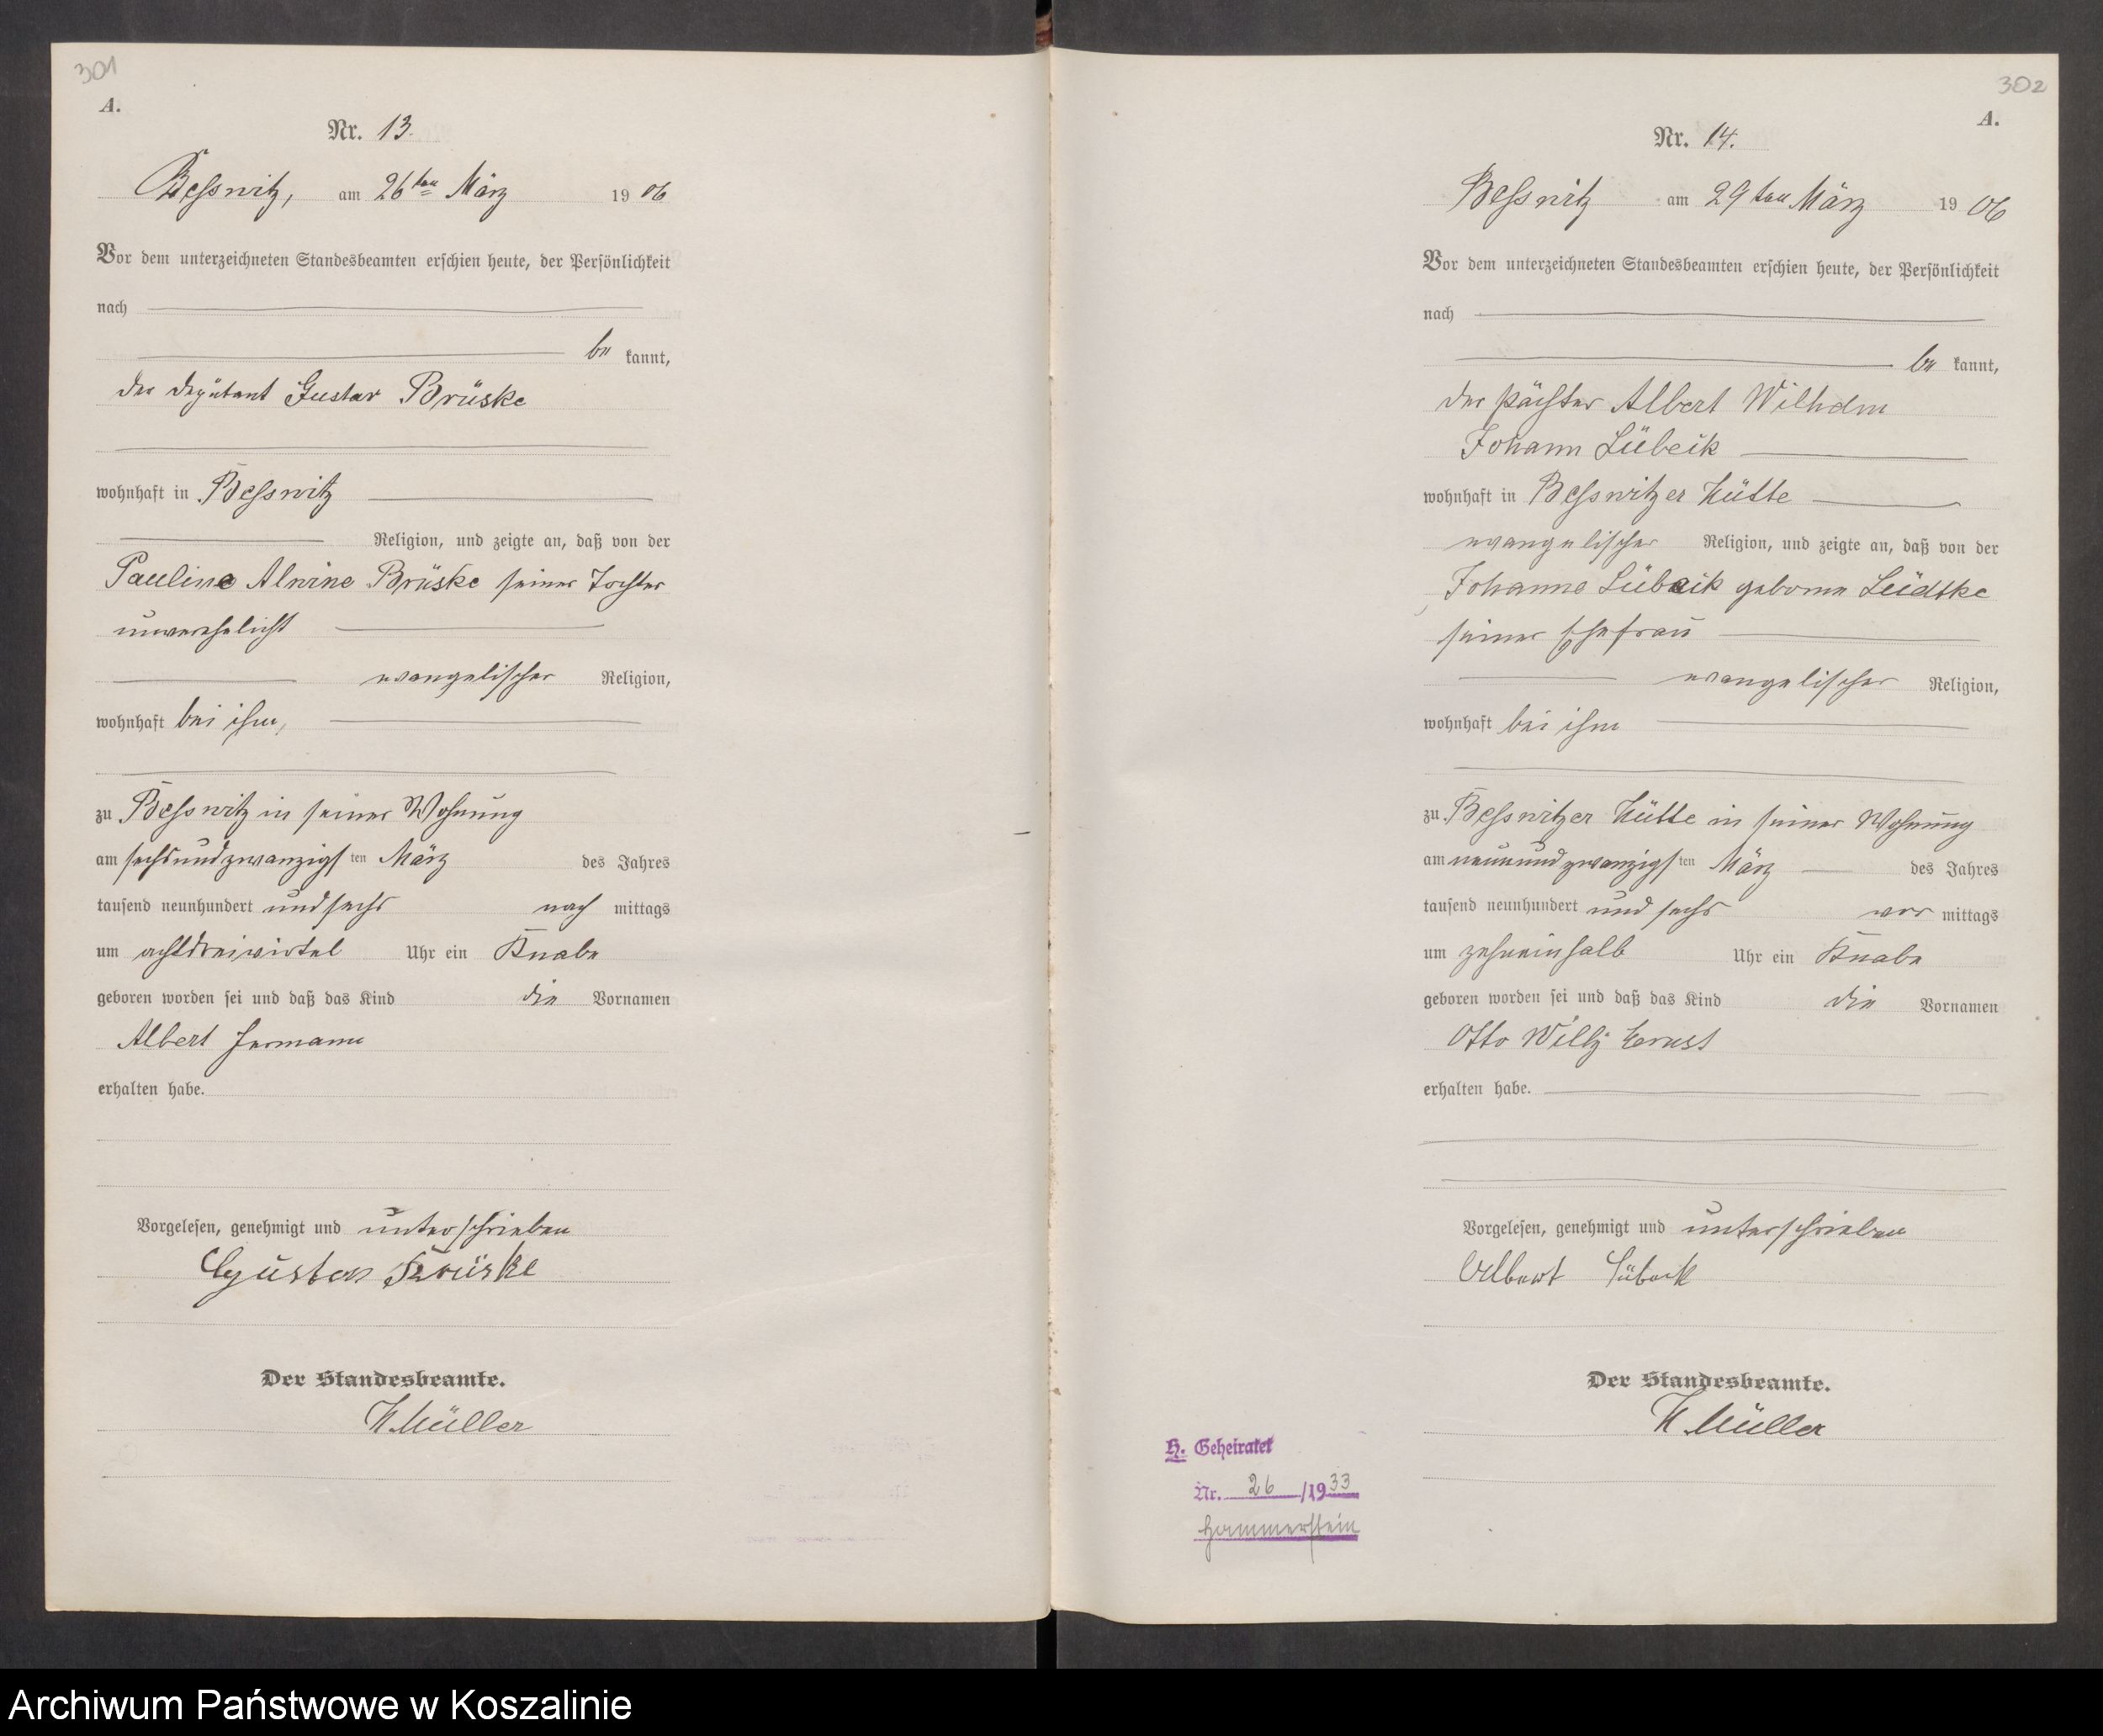 301
A.
Nr. 13.
Beßwitz, am 26ten März 1906
Vor dem unterzeichneten Standesbeamten erschien heute, der Persönlichkeit
nach
be kannt,
der Deputant Gustav Brüske
wohnhaft in Beßwitz
Religion, und zeigte an, daß von der
Pauline Alwine Brüske seiner Tochter
unverehelicht
evangelischer Religion,
wohnhaft bei ihm,
zu Beßwitz in seiner Wohnung
am sechsundzwanzigsten März des Jahres
tausend neunhundert und sechs nach mittags
um achtdreiviertel Uhr ein Knabe
geboren worden sei und daß das Kind die Vornamen
Albert Hermann
erhalten habe.
Vorgelesen, genehmigt und unterschrieben
Gustav Brüske
Der Standesbeamte.
K Müller
302
A.
Nr. 14.
Beßwitz am 29ten März 1906
Vor dem unterzeichneten Standesbeamten erschien heute, der Persönlichkeit
nach
be kannt,
der Pächter Albert Wilhelm
Johann Lübeck
wohnhaft in Beßwitzer Hütte
evangelischer Religion, und zeigte an, daß von der
Johanne Lübeck geborne Lüdtke
seiner Ehefrau
evangelischer Religion,
wohnhaft bei ihm
zu Beßwitzer Hütte in seiner Wohnung
am neunundzwanzigsten März des Jahres
tausend neunhundert und sechs vor mittags
um zehneinhalb Uhr ein Knabe
geboren worden sei und daß das Kind die Vornamen
Otto Willy Ernst
erhalten habe.
Vorgelesen, genehmigt und unterschrieben
Albert Lübeck
Der Standesbeamte.
K Müller
H. Geheiratet
Nr. 26 /1933
Hammerstein
Archiwum Państwowe w Koszalinie